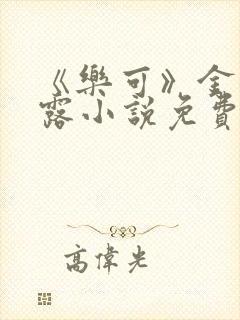 《樂可》金
露小說免費
高偉光